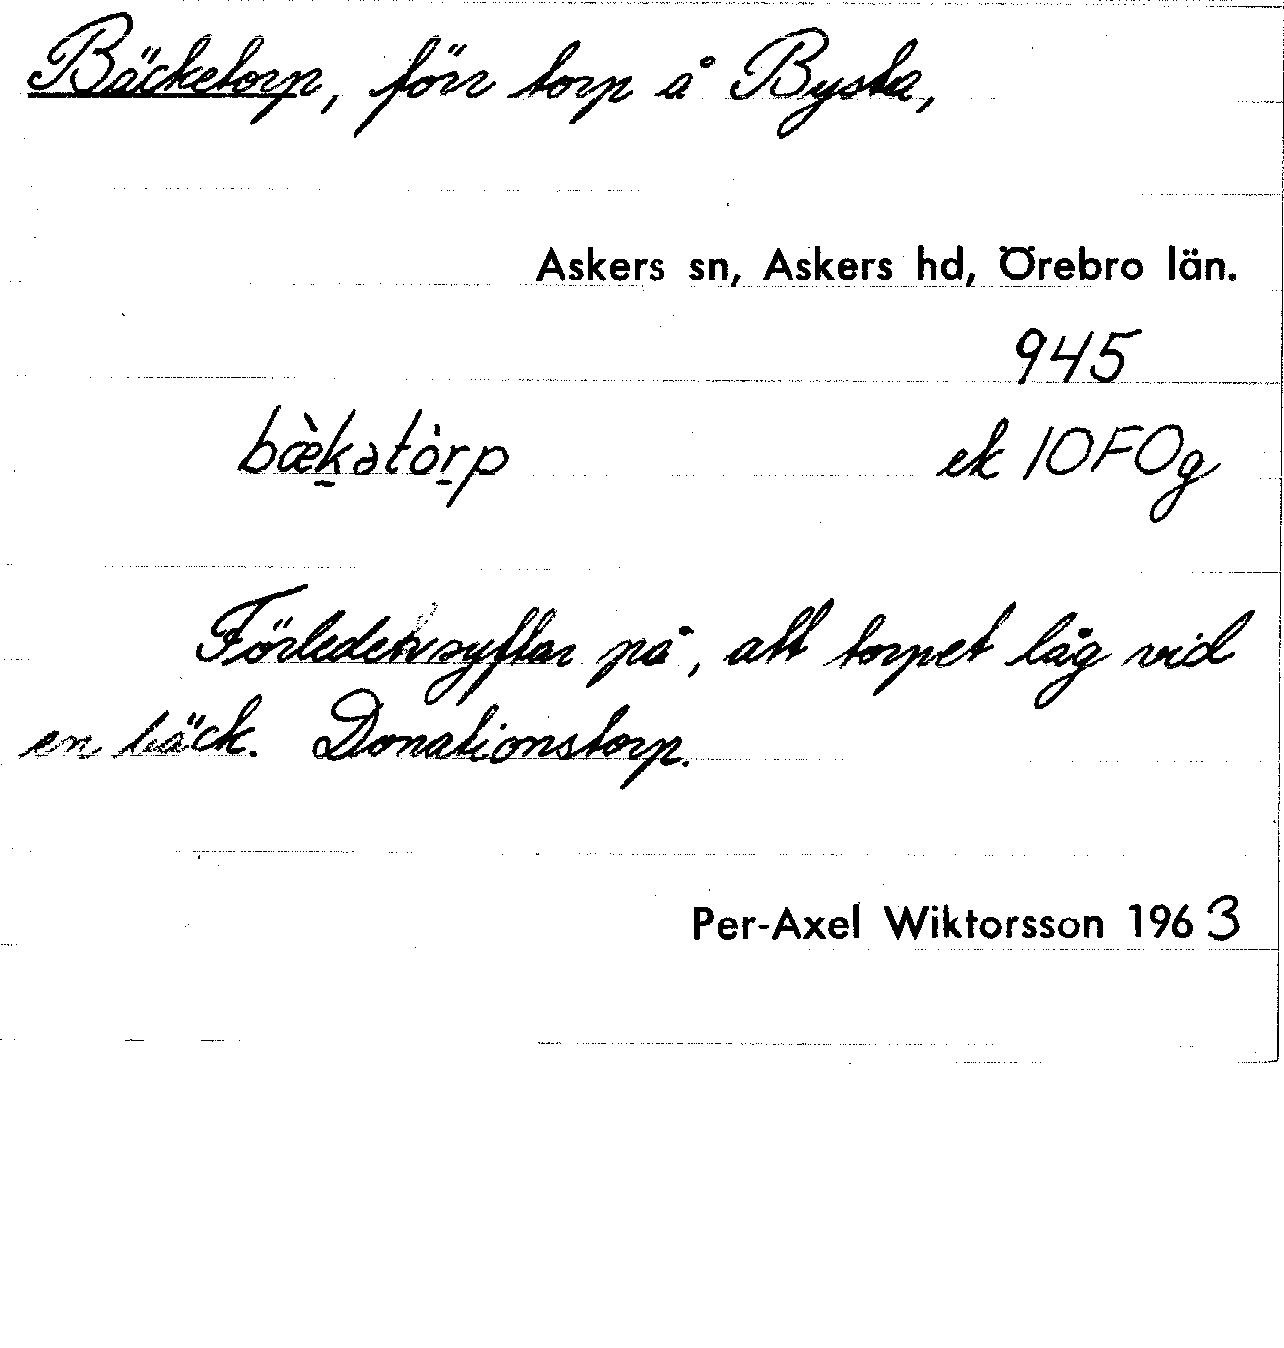 Bäcketorp, förr torp å Bysta,
Askers sn, Askers hd, Örebro län.
945
bæ̀k̠ətòr̠p ek 10F0g
Förleden syftar på, att torpet låg vid
en bäck. Donationstorp.
Per-Axel Wiktorsson 1963